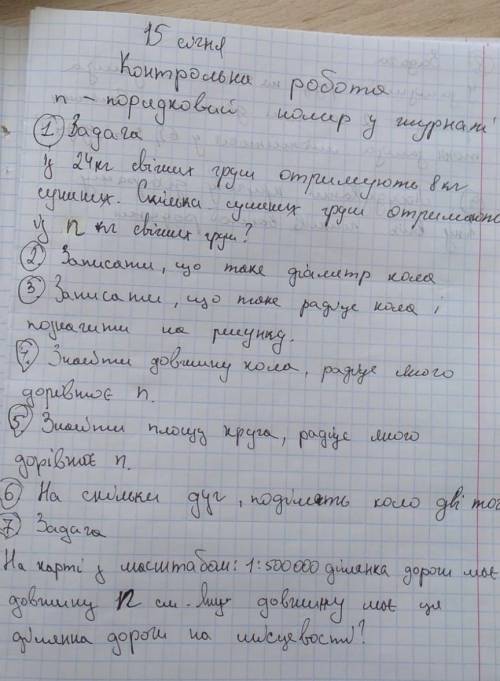 15 січня
Контрольна робота
n - порядковий номер у журналі
1 Задача
У 24 кг свіжих груш отримують 8 кг
сушених. Скільки сушених груш отримають
із n кг свіжих груш?
2 Записати, що таке діаметр кола
3 Записати, що таке радіус кола і
позначити на рисунку.
4. Знайти довжину кола, радіус якого
дорівнює n.
5 Знайти площу круга, радіус якого
дорівнює n.
6 На скільки дуг, поділять коло дві точ
7 Задача
На карті з масштабом: 1:500000 ділянка дороги має
довжину n см. Яку довжину має ця
ділянка дороги на місцевості?